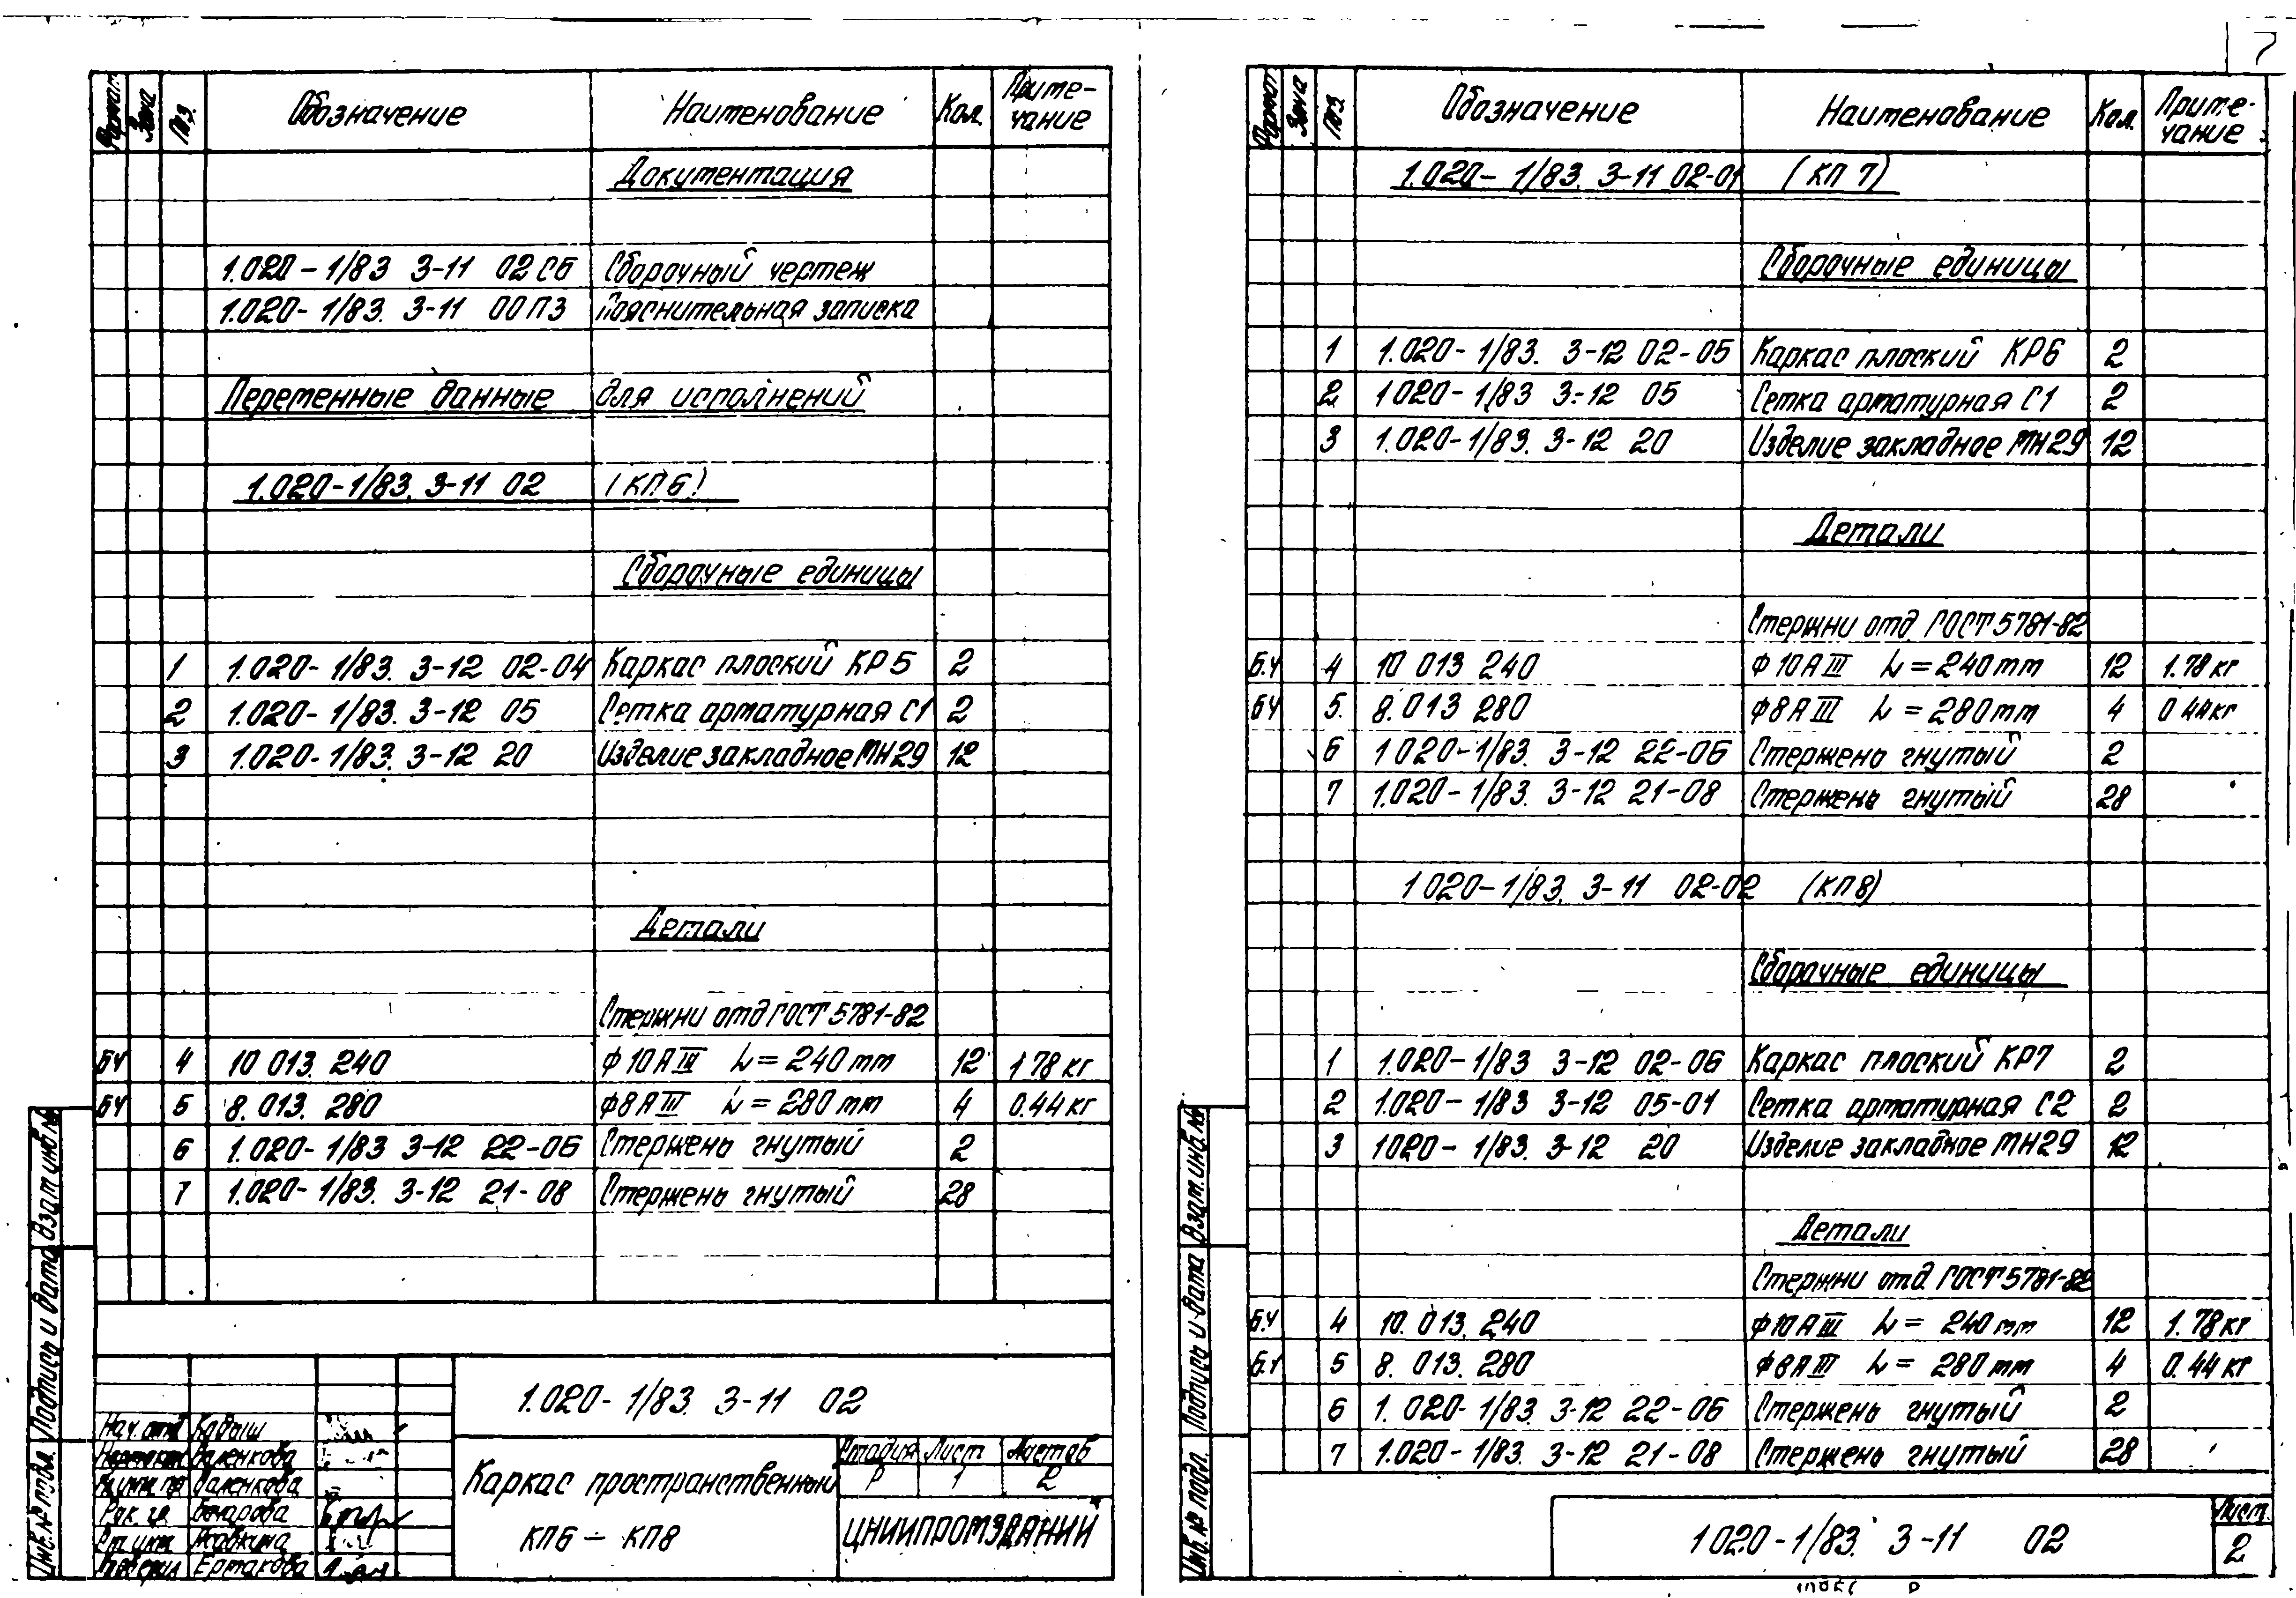 7
Формат Зона Поз. Обозначение Наименование Кол. Приме-чание
Документация
1.020-1/83 3-11 02СБ Сборочный чертеж
1.020-1/83. 3-11 00ПЗ Пояснительная записка
Переменные данные для исполнений
1.020-1/83. 3-11 02 (КП6)
Сборочные единицы
1 1.020-1/83. 3-12 02-04 Каркас плоский КР5 2
2 1.020-1/83. 3-12 05 Сетка арматурная С1 2
3 1.020-1/83. 3-12 20 Изделие закладное МН29 12
Детали
Стержни отд ГОСТ 5781-82
БЧ 4 10 013. 240 Ф10АIII L=240мм 12 1.78 кг
БЧ 5 8. 013. 280 Ф8АIII L=280мм 4 0.44 кг
6 1.020-1/83 3-12 22-06 Стержень гнутый 2
7 1.020-1/83. 3-12 21-08 Стержень гнутый 28
Взам.инв.№
Подпись и дата
Инв.№ подл.
1.020-1/83. 3-11 02
Нач.отд Кодыш
Каркас пространственный
КП6 - КП8
Стадия Лист Листов
Р 1 2
ЦНИИПРОМЗДАНИЙ
Формат Зона Поз. Обозначение Наименование Кол. Приме-чание
1.020-1/83. 3-11 02-01 (КП 7)
Сборочные единицы
1 1.020-1/83. 3-12 02-05 Каркас плоский КР6 2
2 1 020-1/83 3-12 05 Сетка арматурная С1 2
3 1.020-1/83. 3-12 20 Изделие закладное МН29 12
Детали
Стержни отд. ГОСТ 5781-82
Б.Ч 4 10 013 240 Ф10АIII L=240мм 12 1.78 кг
БЧ 5. 8.013 280 Ф8АIII L=280мм 4 0 44кг
6 1 020-1/83. 3-12 22-06 Стержень гнутый 2
7 1.020-1/83. 3-12 21-08 Стержень гнутый 28
1.020-1/83. 3-11 02-02 (КП8)
Сборочные единицы
1 1.020-1/83 3-12 02-06 Каркас плоский КР7 2
2 1.020-1/83 3-12 05-01 Сетка арматурная С2 2
3 1020-1/83. 3-12 20 Изделие закладное МН29 12
Детали
Стержни отд. ГОСТ 5781-82
Б.Ч 4 10. 013. 240 Ф10АIII L= 240мм 12 1.78 кг
Б.Ч 5 8. 013. 280 Ф8АIII L= 280мм 4 0.44 кг
6 1. 020-1/83. 3-12 22-06 Стержень гнутый 2
7 1.020-1/83. 3-12 21-08 Стержень гнутый 28
Взам.инв.№
Подпись и дата
Инв.№ подл.
1.020-1/83. 3-11 02
Лист
2